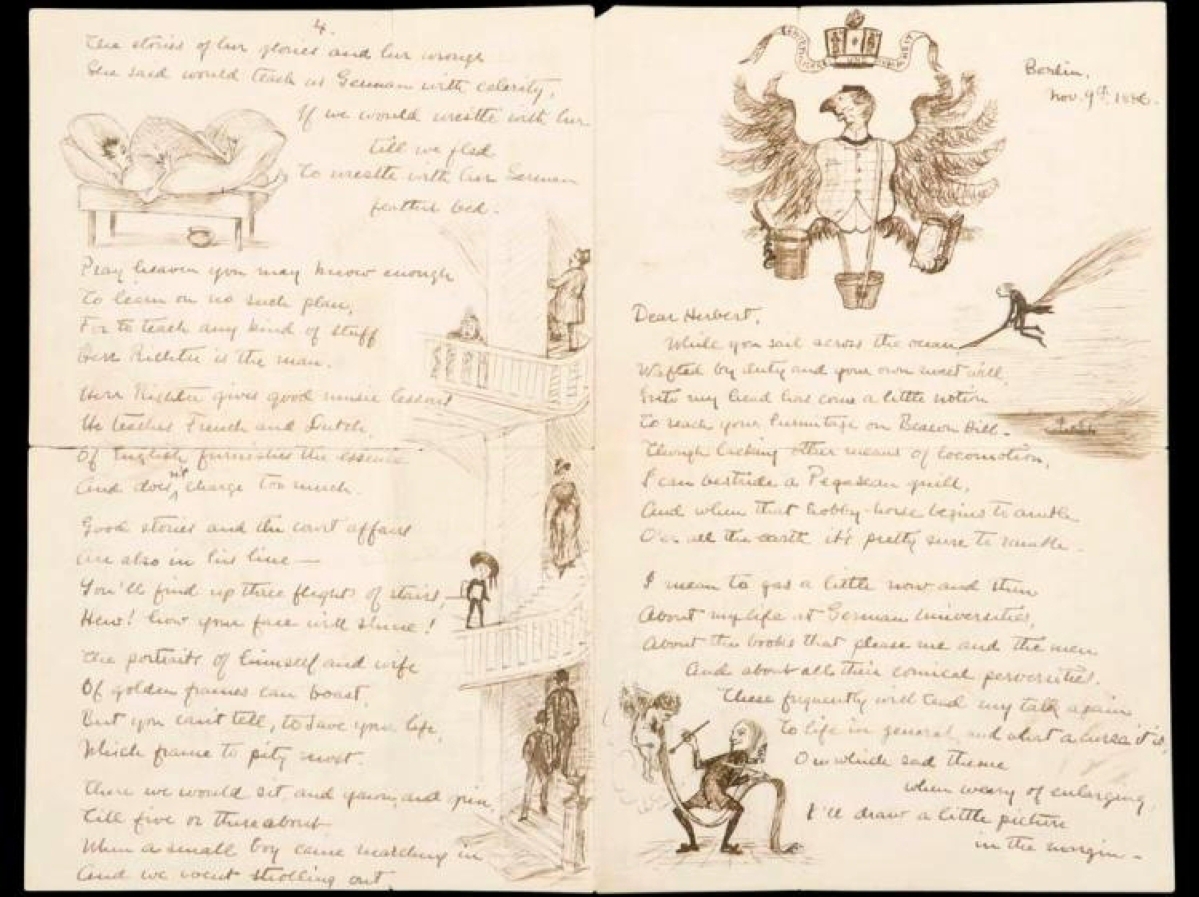 4.
The stories of her glories and her wrongs
She said would teach us German with celerity,
If we would wrestle with her
till we fled
To wrestle with her German
feather bed.
Pray heaven you may know enough
To learn on no such plan,
For to teach any kind of stuff
Herr Richter is the man.
Herr Richter gives good music lessons
He teaches French and Dutch,
Of English furnishes the essence
And does n't charge too much.
Good stories and the court affairs
Are also in his line—
You'll find up three flights of stairs,
How your face will shine!
The portraits of himself and wife
Of golden frames can boast,
But you can't tell, to save your life,
Which frame to pity most.
There we would sit, and yawn, and
Till five or thereabout
When a small boy came marching in
And we went strolling out.
Berlin,
Nov. 9th, 1886.
Dear Herbert,
While you sail across the ocean,
Wafted by duty and your own sweet will,
Into my head has come a little notion
To reach your hermitage on Beacon Hill.
Though lacking other means of locomotion,
I can bestride a Pegasean quill,
And when that hobby-horse begins to amble
O'er all the earth it's pretty sure to ramble.
I mean to gas a little now and then
About my life at German Universities,
About the books that please me and the men
And about all their comical perversities.
These frequently will tend my talk again
To life in general, and what a curse it is,
On which sad theme
when weary of enlarging,
I'll draw a little picture
in the margin—